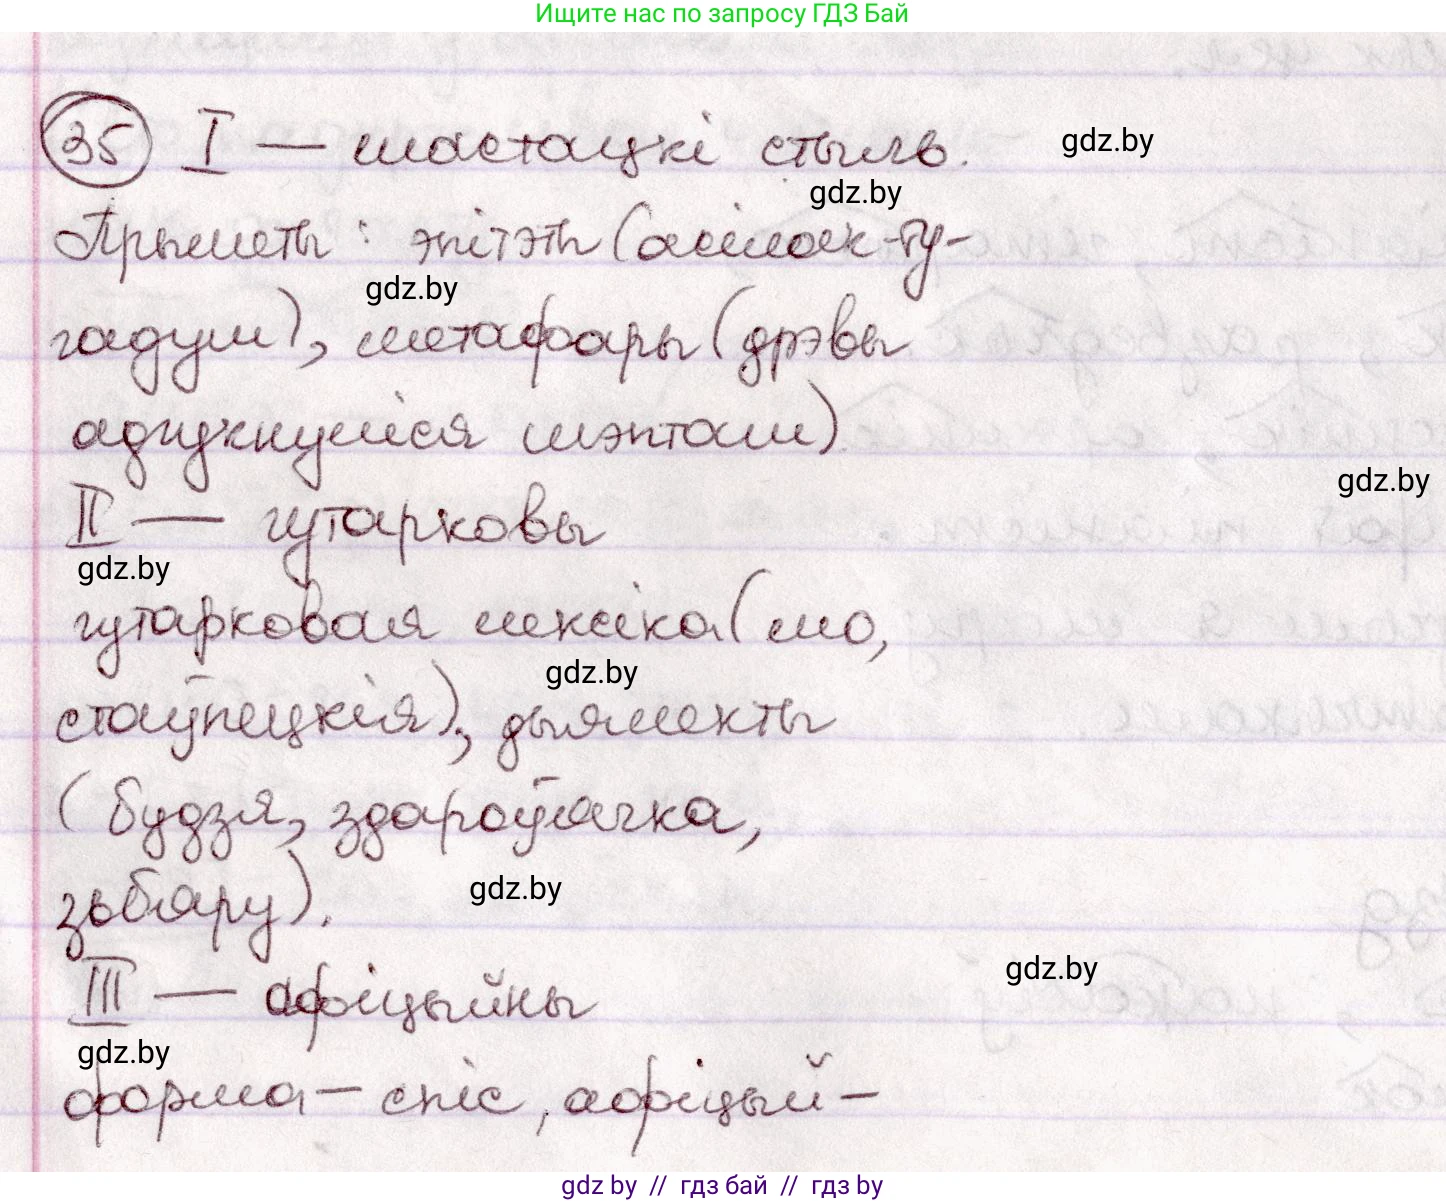 Ищите нас по запросу ГДЗ Бай
35 I — мастацкі стыль.
gdz.by
gdz.by
Прыметы: эпітэты (асілак-ту-
gdz.by
гадум), метафары (дрэвы
адгукнуліся шэптам)
gdz.by
II — гутарковы
gdz.by
гутарковая лексіка (мо,
gdz.by
стаўпецкія), дыялекты
(будзя, здароўечка,
зьбяру).
gdz.by
gdz.by
III — афіцыйны
gdz.by
форма – спіс, афіцый –
gdz by // гдз бай // гдз by